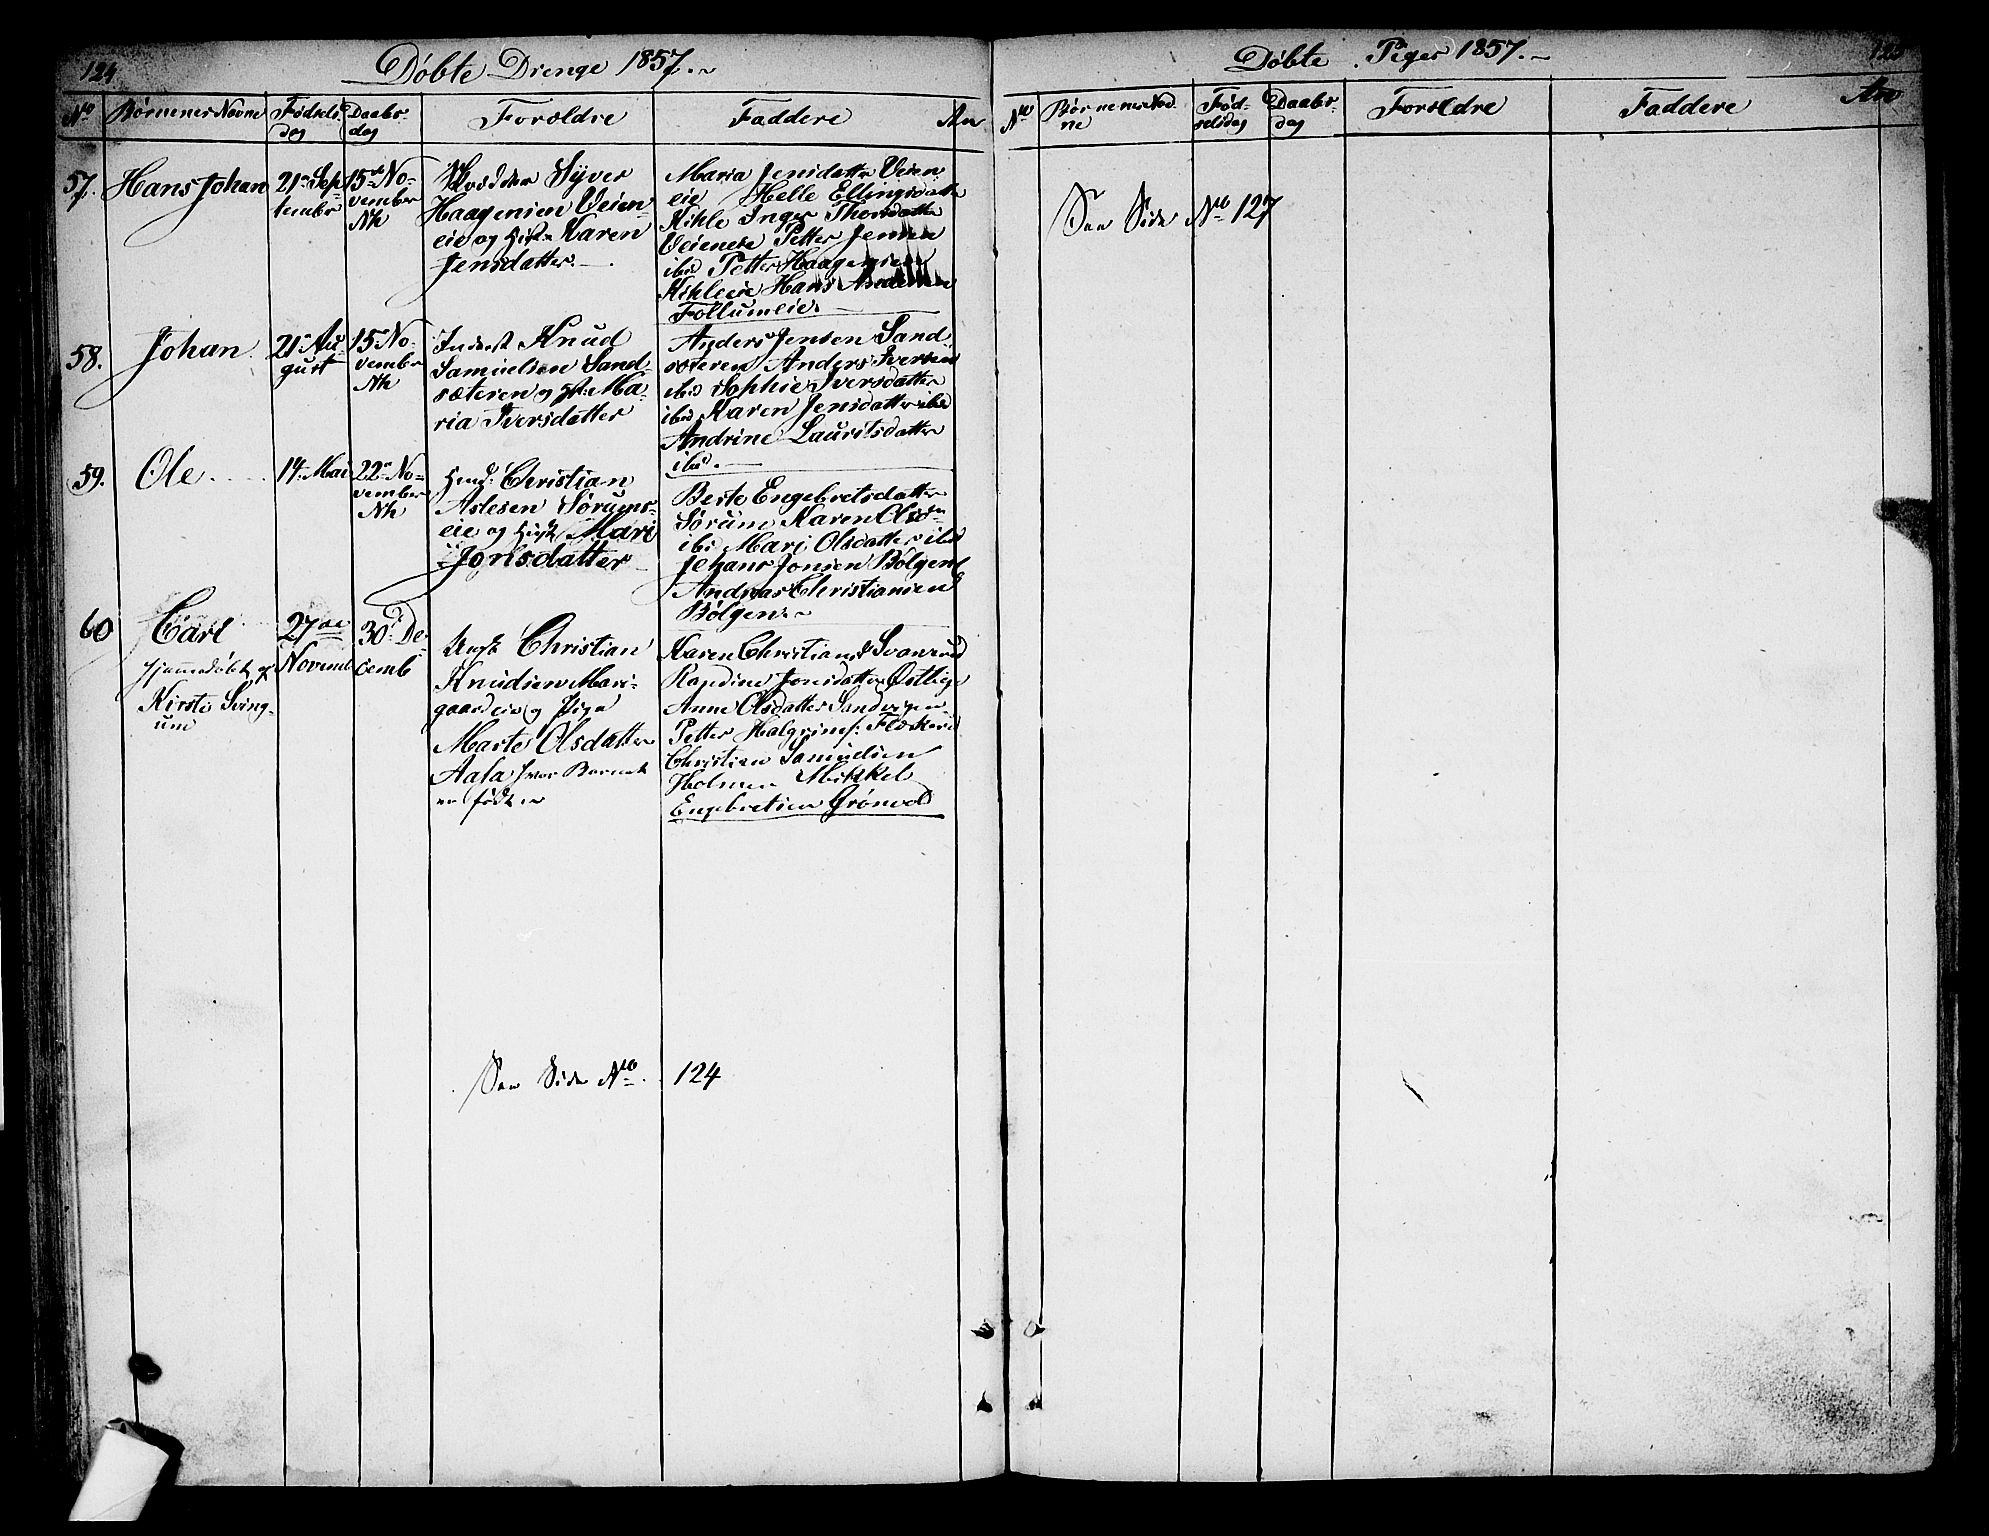 124
Døbte Drenge 1857.
No
Børnenes Navne
Fødsels
dag
Daabs-
dag
Forældre
Faddere
An
57.
Hans Johan
21 Sep
tember
15 No-
vember
Nk
Syver
Haagensen Veien-
eie og Karen
Jensdatter.
Maria Jensdatter Veien
eie Helle Ellingsdatter
Kihle Inger Thorsdatter
Veieneie Petter Jensen
ibd Petter Haagensen
Kihleeie Hans Andersen
Follumeie.
58.
Johan
21 Au-
gust
15 No-
vember
Nk
Inderst Knud
Samuelsen Sand-
sæteren og Ma-
ria Iversdatter
Anders Jensen Sand
sæteren Anders Iversen
ibd Sophie Iversdatter
ibd Karen Jensdatter ibd
Andrine Lauritsdatter
ibd.
59.
Ole
14 Mai
22 No-
vember
Nk
Christian
Aslesen Sørums-
eie og Mari
Jonsdatter
Berte Engebretsdatter
Sørum Karen Olsd
ibd Mari Olsdatter ibd
Johans Jonsen Bølgen
Andreas Christiansen
Bølgen
60
Carl
Hjemmedøbt af
Kirsti Sving-
um
27de
Novemb
30 De-
cemb
Ungk Christian
Knudsen Mari-
gaardeie og Pige
Marte Olsdatter
Aasa hvor Barnet
er født
Karen Christiansd Svarverud
Randine Jonsdatter
Anne Olsdatter
Petter Halgrims:
Christian Samuelsen
Holmen Mikkel
Engebretsen Grønvold
See Side No. 124
Døbte Piger 1857.
125
No
Børnenes Nav-
ne
Fød-
selsdag
Daabs-
dag
Forældre
Faddere
An
See Side No 127